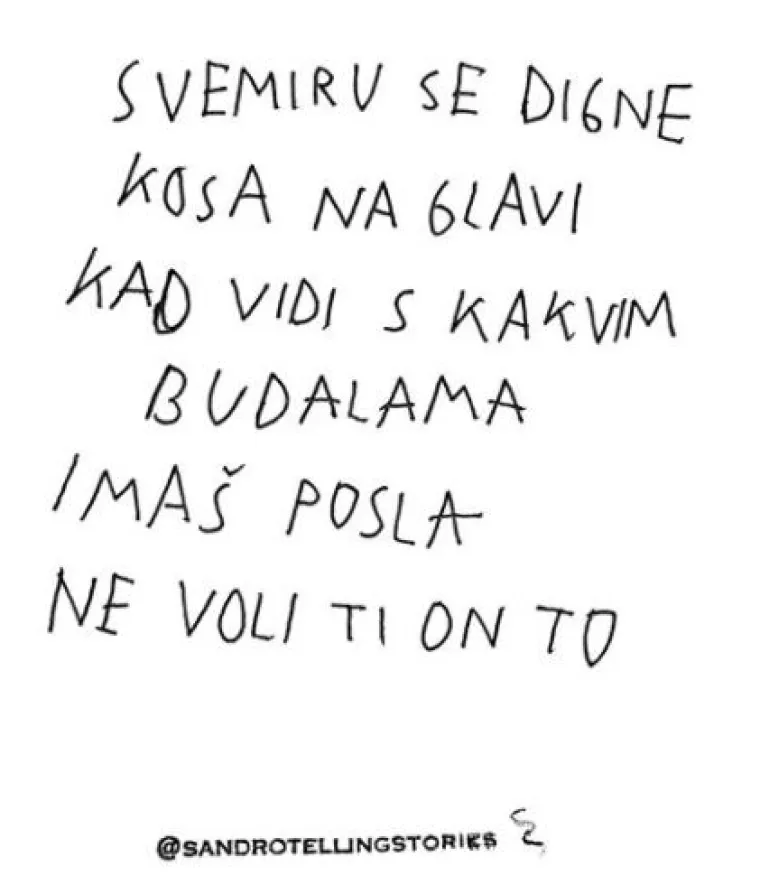 SVEMIRU SE DIGNE
KOSA NA GLAVI
KAD VIDI S KAKVIM
BUDALAMA
IMAŠ POSLA
NE VOLI TI ON TO
@SANDROTELLINGSTORIES